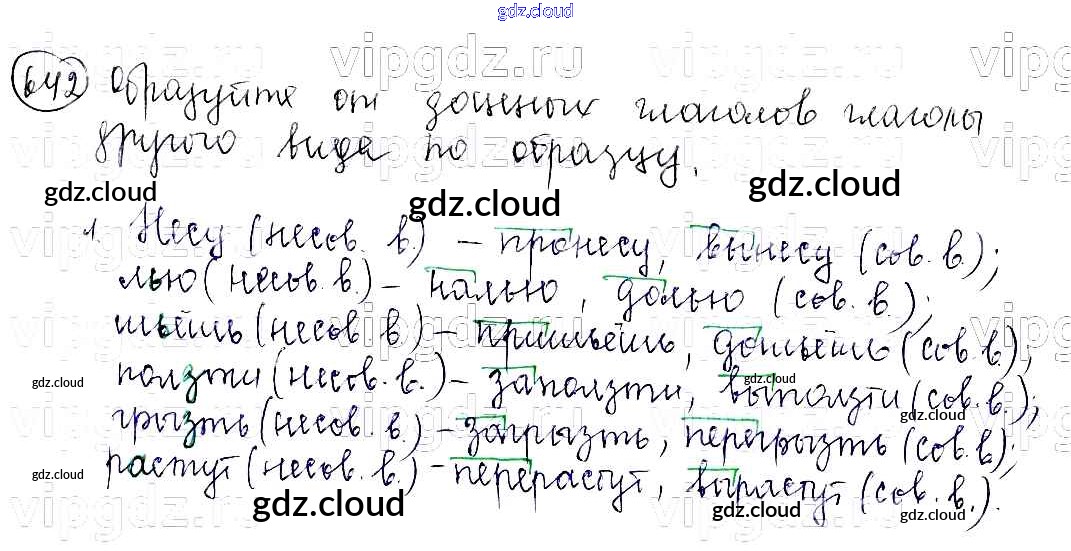 gdz.cloud
642 Образуйте от данных глаголов глаголы
другого вида по образцу.
gdz.cloud gdz.cloud gdz.cloud
1. Несу (несов. в.) – пронесу, вынесу (сов. в.);
лью (несов. в.) – налью, долью (сов. в.);
шьёшь (несов. в.) – пришьёшь, дошьёшь (сов. в.);
ползти (несов. в.) – заползти, выползти (сов. в.);
gdz.cloud gdz.cloud gdz.cloud
грызть (несов. в.) – загрызть, перегрызть (сов. в.);
растут (несов. в.) – перерастут, вырастут (сов. в.).
gdz.cloud gdz.cloud gdz.cloud gdz.cloud
vipgdz.ru vipgdz.ru vipgdz.ru